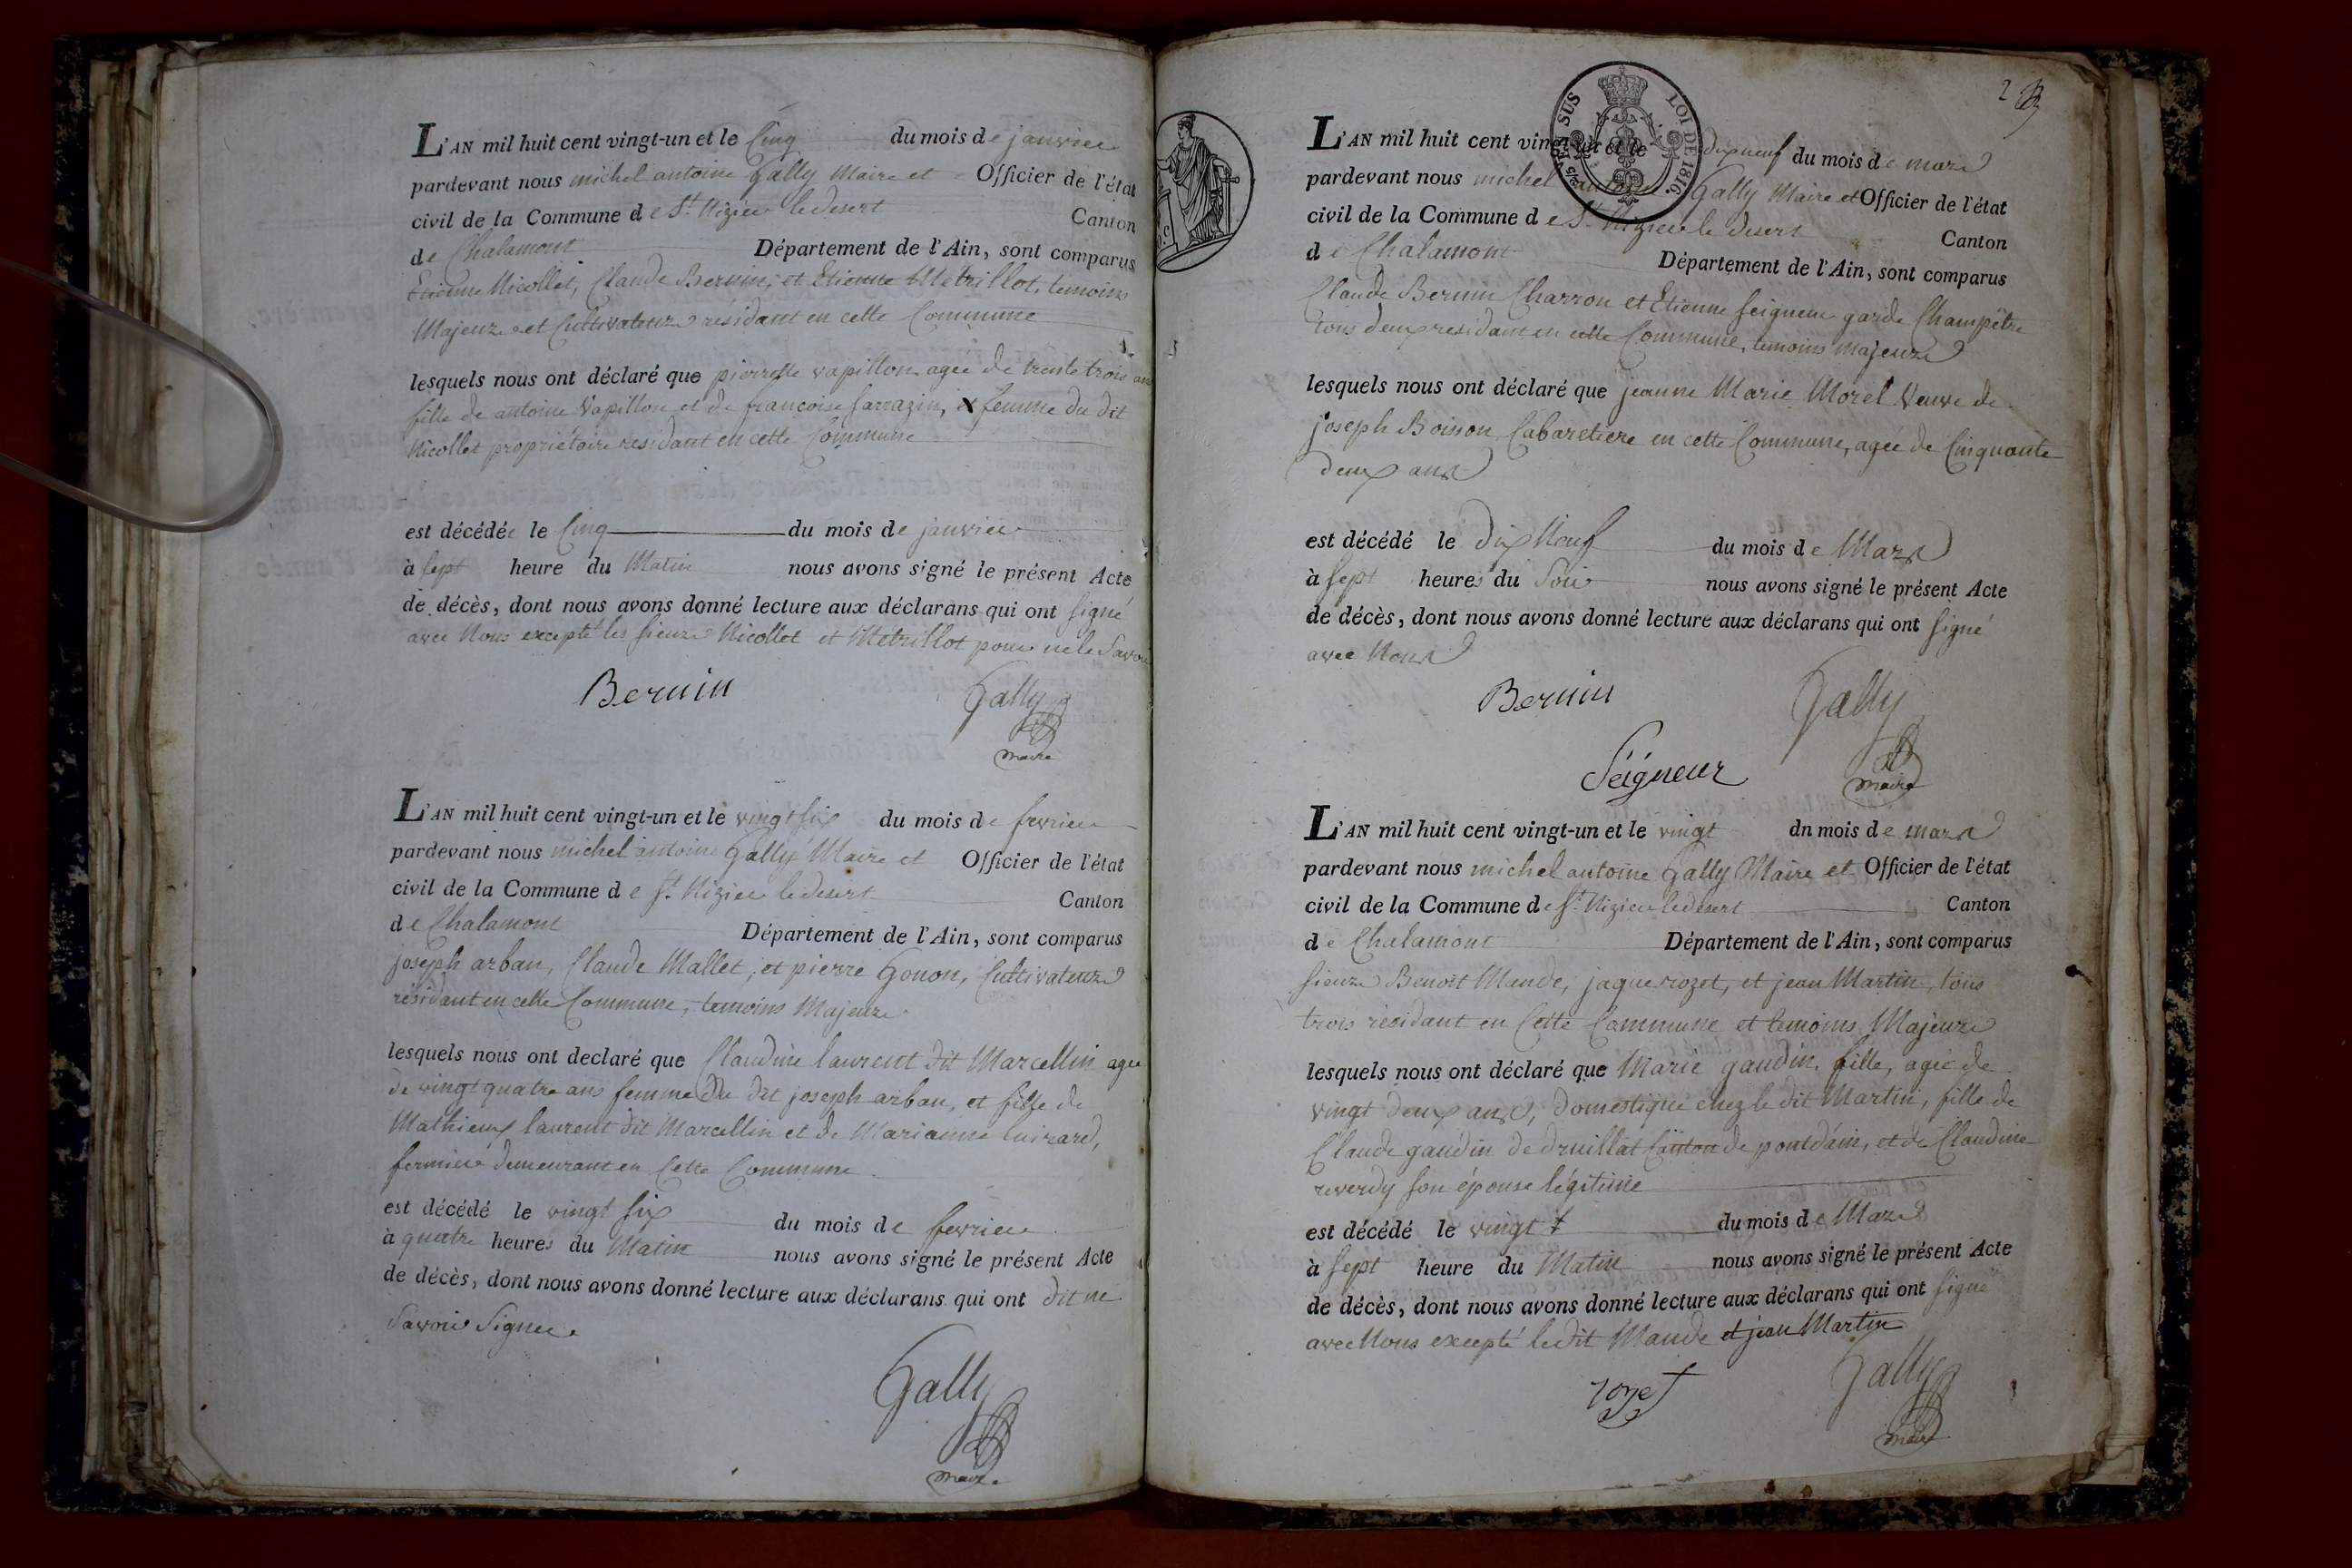 L'AN mil huit cent vingt-un et le Cinq du mois de janvier
pardevant nous michel antoine Gally Maire et Officier de l'état
civil de la Commune de St. Nizier le desert Canton
de Chalamont Département de l'Ain, sont comparus
Etienne Nicollet, Claude Bernin, et Etienne Métrillot, temoins
Majeurs et Cultivateurs résidant en cette Commune
lesquels nous ont déclaré que pierrette vapillon agée de trente trois ans
fille de antoine Vapillon et de francoise Sarrazin, femme du dit
Nicollet propriétaire residant en cette Commune
est décédée le Cinq du mois de janvier
à sept heure du Matin nous avons signé le présent Acte
de décès, dont nous avons donné lecture aux déclarans qui ont signé
avec Nous excepté les sieurs Nicollet et Métrillot pour ne le Savoir
Bernin Gally
maire
L'AN mil huit cent vingt-un et le vingt six du mois de fevrier
pardevant nous michel antoine Gally Maire et Officier de l'état
civil de la Commune de St. Nizier le desert Canton
de Chalamont Département de l'Ain, sont comparus
joseph arban, Claude Mallet, et pierre Gonon, Cultivateurs
résidant en cette Commune, temoins Majeurs
lesquels nous ont declaré que Claudine laurent dit Marcellin agée
de vingt quatre ans femme du dit joseph arban, et fille de
Mathieux laurent dit Marcellin et de Marianne luizard,
fermier demeurant en Cette Commune
est décédé le vingt six du mois de fevrier
à quatre heures du Matin nous avons signé le présent Acte
de décès, dont nous avons donné lecture aux déclarans qui ont dit ne
Savoir Signer
Gally
maire
2
5 EN SUS LOI DE 1816.
L'AN mil huit cent vingt-un et le dix neuf du mois de mars
pardevant nous michel antoine Gally Maire et Officier de l'état
civil de la Commune de St. Nizier le desert Canton
de Chalamont Département de l'Ain, sont comparus
Claude Bernin Charron et Etienne Seigneur garde Champêtre
tous deux residant en cette Commune, temoins majeurs
lesquels nous ont déclaré que jeanne Marie Morel Veuve de
joseph Boisson Cabaretiere en cette Commune, agée de Cinquante
deux ans
est décédé le dix Neuf du mois de Mars
à sept heures du Soir nous avons signé le présent Acte
de décès, dont nous avons donné lecture aux déclarans qui ont signé
avec Nous
Bernin Gally
Seigneur maire
L'AN mil huit cent vingt-un et le vingt dn mois de mars
pardevant nous michel antoine Gally Maire et Officier de l'état
civil de la Commune de St. Nizier le desert Canton
de Chalamont Département de l'Ain, sont comparus
sieurs Benoit Mande, jaque rozet, et jean Martin, tous
trois résidant en Cette Commune et temoins Majeurs
lesquels nous ont déclaré que Marie gaudin, fille, agée de
vingt deux ans, domestique chez le dit Martin, fille de
Claude gaudin de druillat Canton de pontdain, et de Claudine
reverdy son épouse légitime
est décédé le vingt du mois de Mars
à sept heure du Matin nous avons signé le présent Acte
de décès, dont nous avons donné lecture aux déclarans qui ont signé
avec Nous excepté le dit Mande et jean Martin
rozet Gally
maire